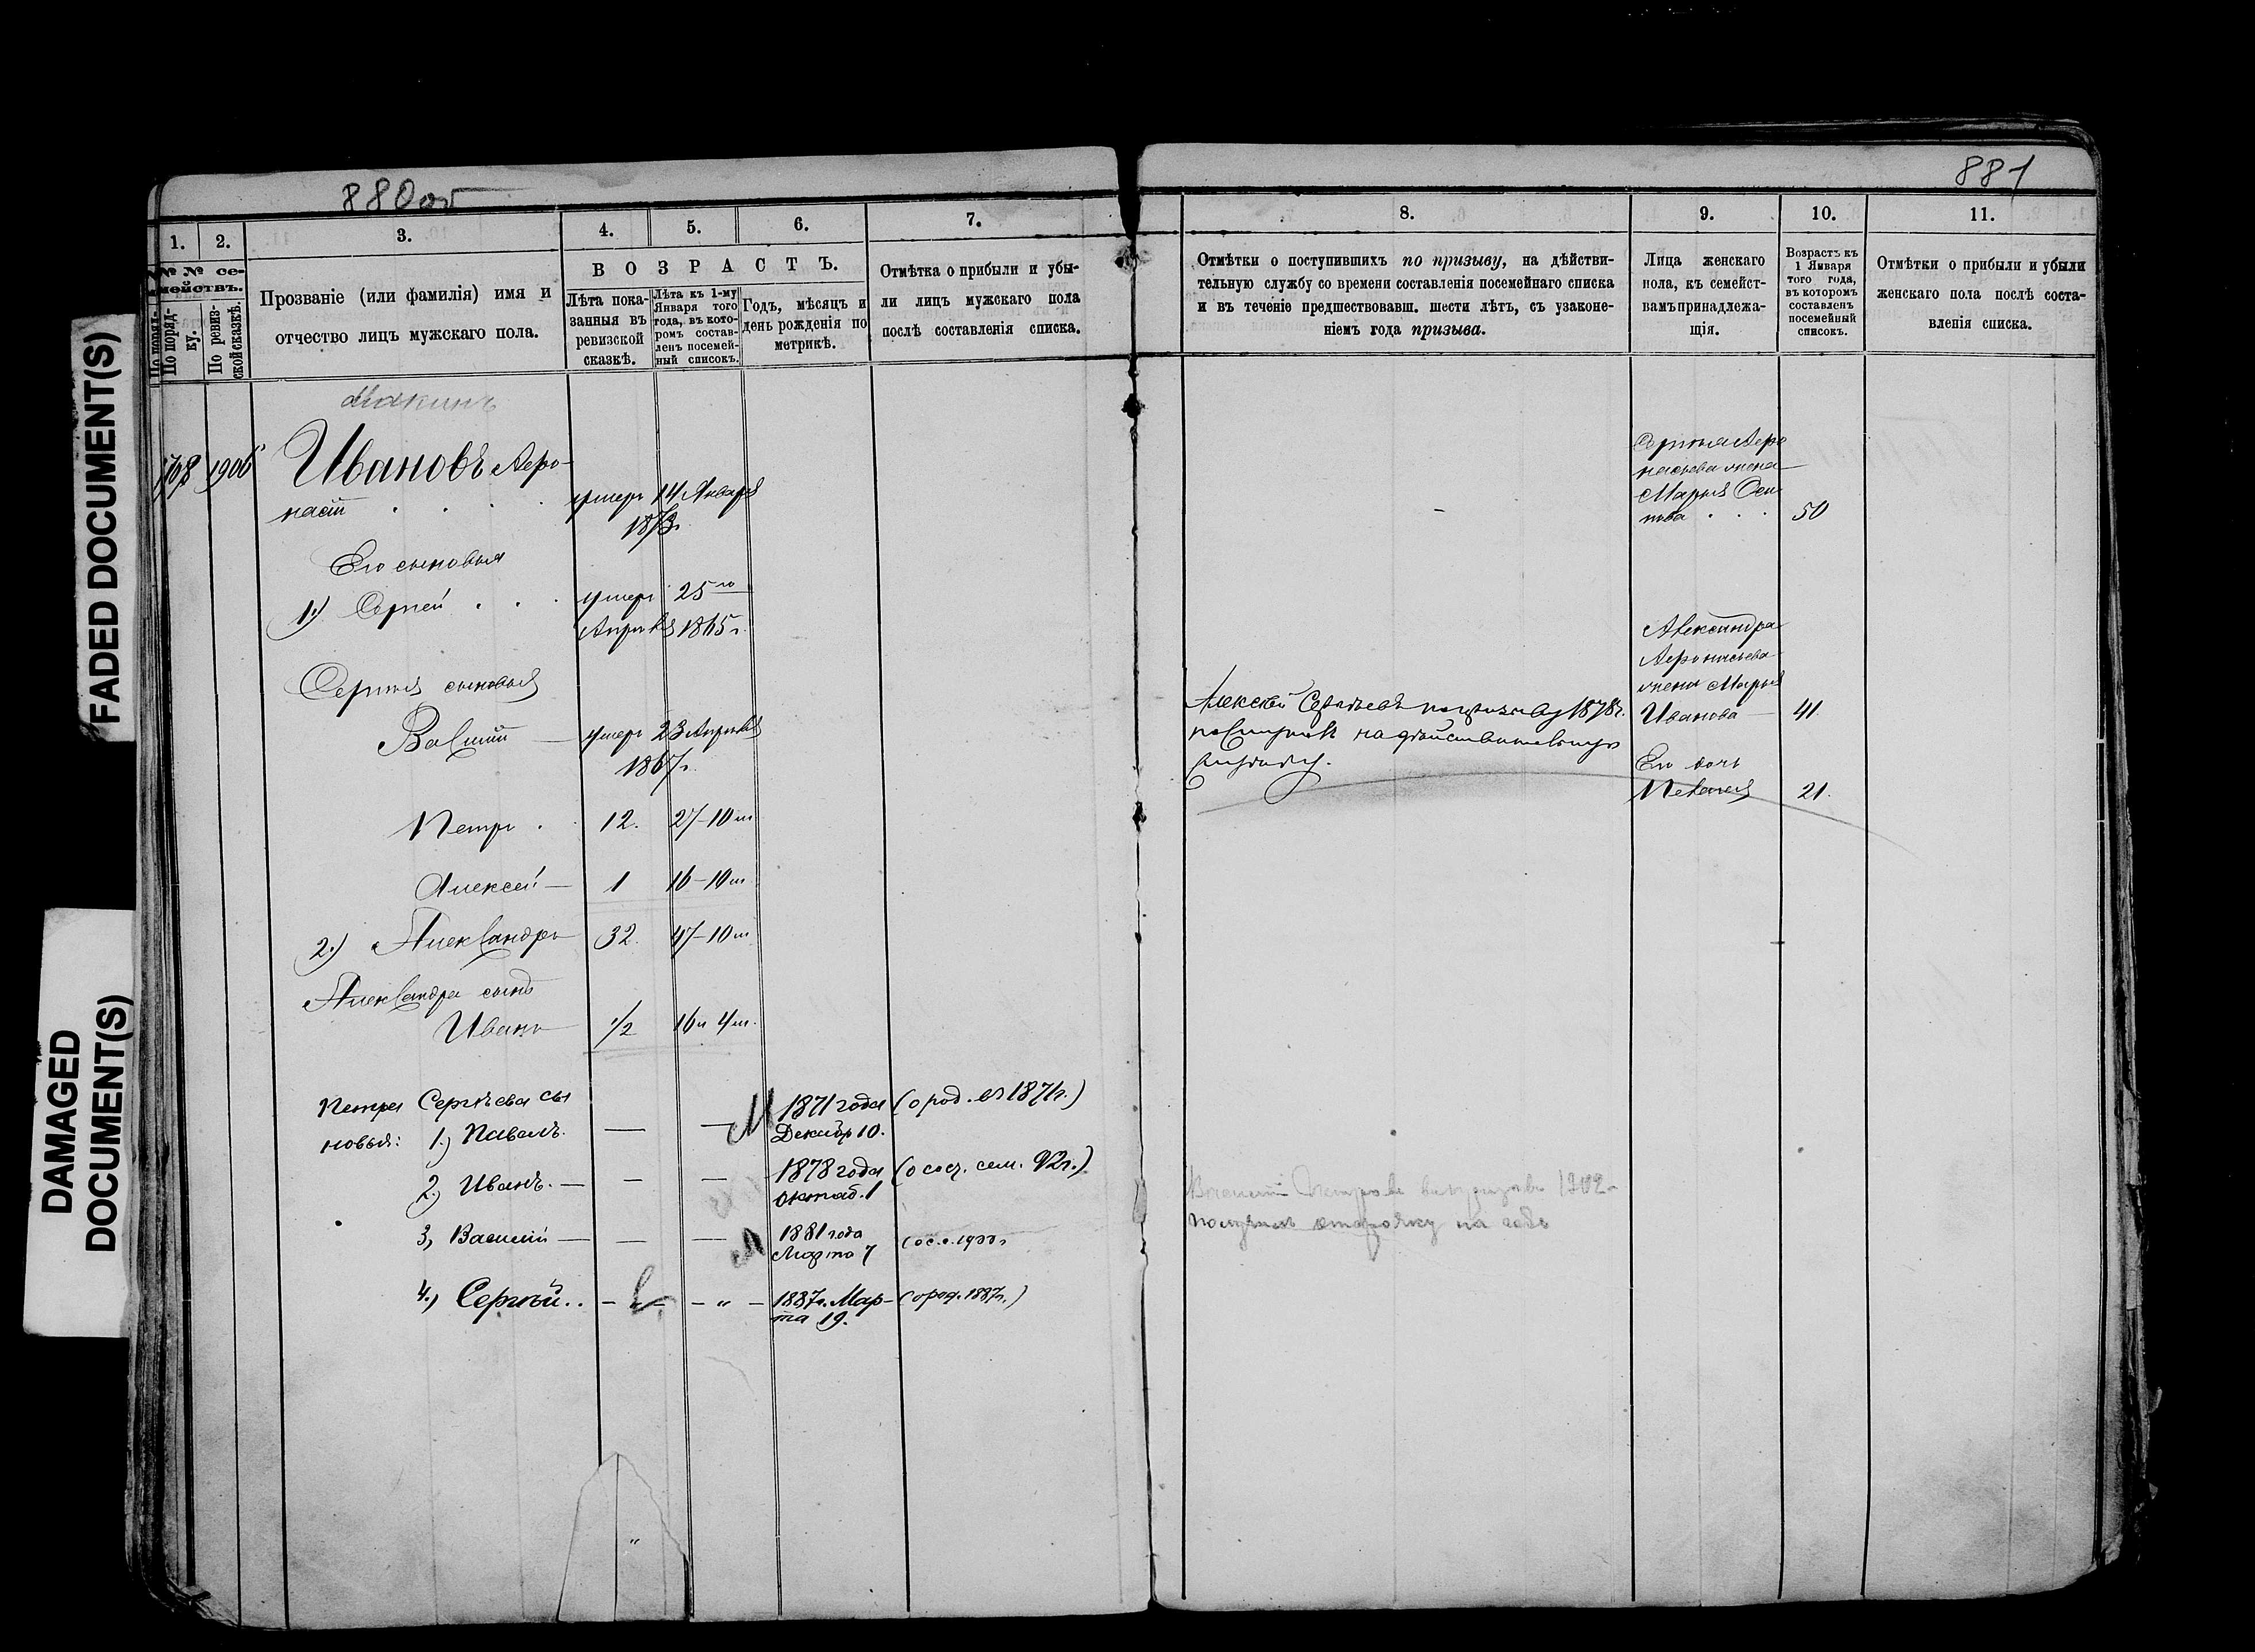 FADED DOCUMENT(S)
DAMAGED
DOCUMENT(S)
880 об
1.
2.
3.
4.
5.
6.
7.
№№ се-
мействъ.
По поряд-
ку.
По ревиз-
ской сказкѣ.
Прозваніе (или фамилія) имя и
отчество лицъ мужскаго пола.
ВОЗРАСТЪ.
Лѣта пока-
занныя въ
ревизской
сказкѣ.
Лѣта къ 1-му
Января того
года, въ кото-
ромъ состав-
ленъ посемей-
ный списокъ.
Годъ, мѣсяцъ и
день рожденія по
метрикѣ.
Отмѣтка о прибыли и убы-
ли лицъ мужскаго пола
послѣ составленія списка.
Ивановъ Афо-
насій
умеръ 14 Января
1873г.
Его сыновья
1.) Сергей
умеръ 25го
Апрѣля 1865г.
Сергѣя сыновья
Василій — умеръ 23 Апрѣля
1867г.
Петръ 12. 27-10м
Алексей — 1 16-10м
2.) Александръ 32. 47-10м
Александра сынъ
Иванъ 1/2 16и 4м.
Петра Сергѣева сы
новья: 1.) Павелъ. — — М 1871 года (о род. въ 1871г.)
Декабр 10.
2.) Иванъ. — — — 1878 года (о сост. сем. 92г.)
Октяб. 1
3, Василій — — — М 1881 года
Марта 7
4.) Сергѣй.. — „ — 1887г. Мар- (о род. 1887г.)
та 19.
881
8.
9.
10.
11.
Отмѣтки о поступившихъ по призыву, на дѣйстви-
тельную службу со времени составленія посемейнаго списка
и въ теченіе предшествовавш. шести лѣтъ, съ узаконе-
ніемъ года призыва.
Лица женскаго
пола, къ семейст-
вамъ принадлежа-
щія.
Возрастъ къ
1 Января
того года,
въ которомъ
составленъ
посемейный
списокъ.
Отмѣтки о прибыли и убыли
женскаго пола послѣ соста-
вленія списка.
Сергѣя Афо
насьева жена
Марья Оси
пова 50
Александра
Афонасьева
жена Марья
Иванова — 41.
Его дочь
Пелагея 21.
Алексѣй Сергѣевъ по призыву 1878г.
поступилъ на дѣйствительную
службу.
Василій Петровъ по призыву 1902
получилъ отсрочку на годъ